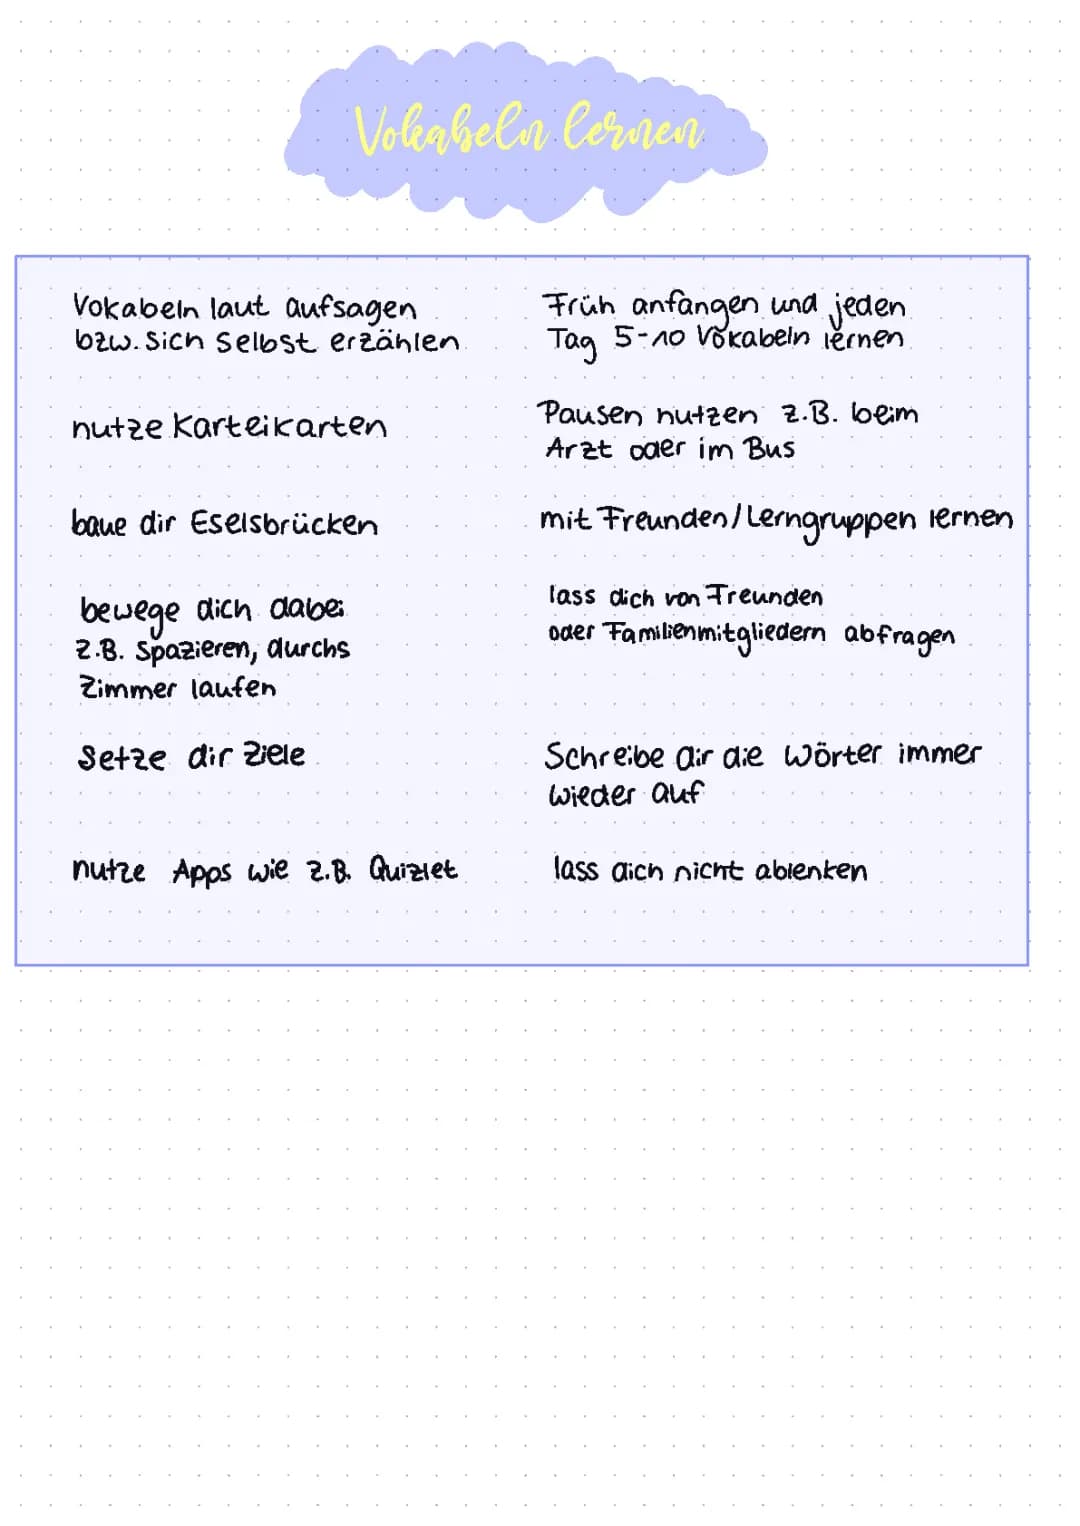 Vokabeln lernen
Vokabeln laut aufsagen
bzw. sich selbst erzählen
nutze Karteikarten
baue dir Eselsbrücken
bewege dich dabei
z.B. Spazieren, durchs
Zimmer laufen
Setze dir Ziele
nutze Apps wie z.B. Quizlet
Früh anfangen und jeden
Tag 5-10 Vokabeln lernen
Pausen nutzen z.B. beim
Arzt oder im Bus
mit Freunden/Lerngruppen lernen
lass dich von Freunden
oder Familienmitgliedern abfragen
Schreibe dir die Wörter immer
wieder auf
lass dich nicht ablenken